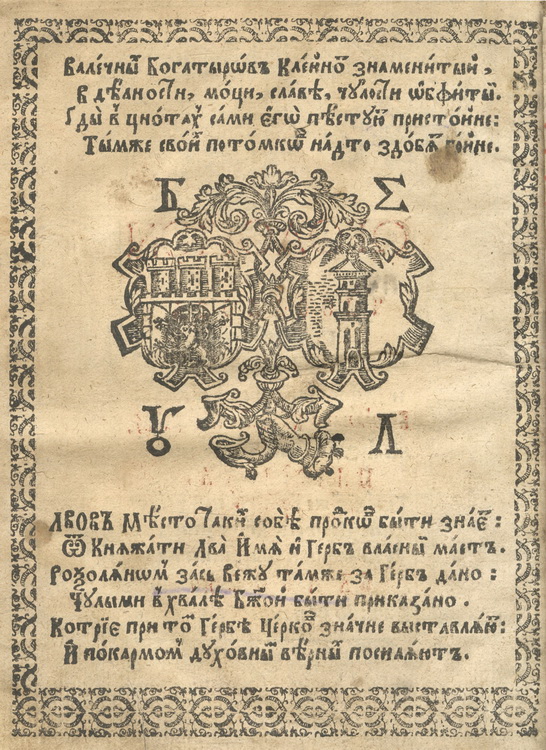 Валечны̃ Богатырѡвъ Клейно̃ знаменитый,
в дѣлности, моци, славѣ, чулости ѡбфиты̃.
Ґды в̾ цнота̃ сами єгѡ пѣстую̃ пристойне:
Тымже свои̃ потомкѡ̃ надто здобя̃ гойне.
Б Σ
Ȣ Λ
Лвовъ Мѣсто Таки̃ собѣ про̃кѡ̃ быти знає̃:
Ѿ Княжати Лва Имя и Гербъ власны̃ маетъ.
Розоляном̾ зась Вежу тамже за Гербъ дано:
Чулыми в̾ хвалѣ Бж҃ой быти приказано.
Котріє при то̃ Гербѣ Церко̃ значне выставляю̃:
И покармом̾ духовны̃ вѣрны̃ посиляютъ.